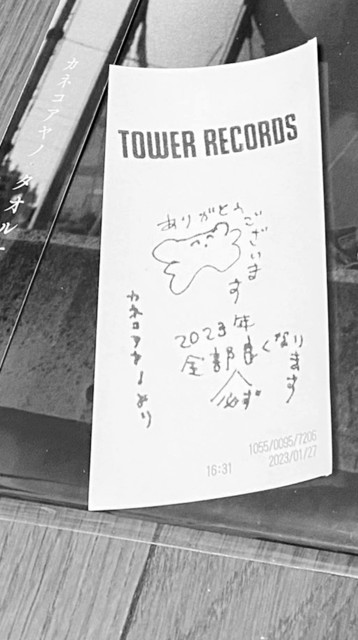 カネコアヤノ・タオル
TOWER RECORDS
ありがとうございます
2023年
全部良くなります
必ず
カネコアヤノより
1055/0095/7206
16:31 2023/01/27